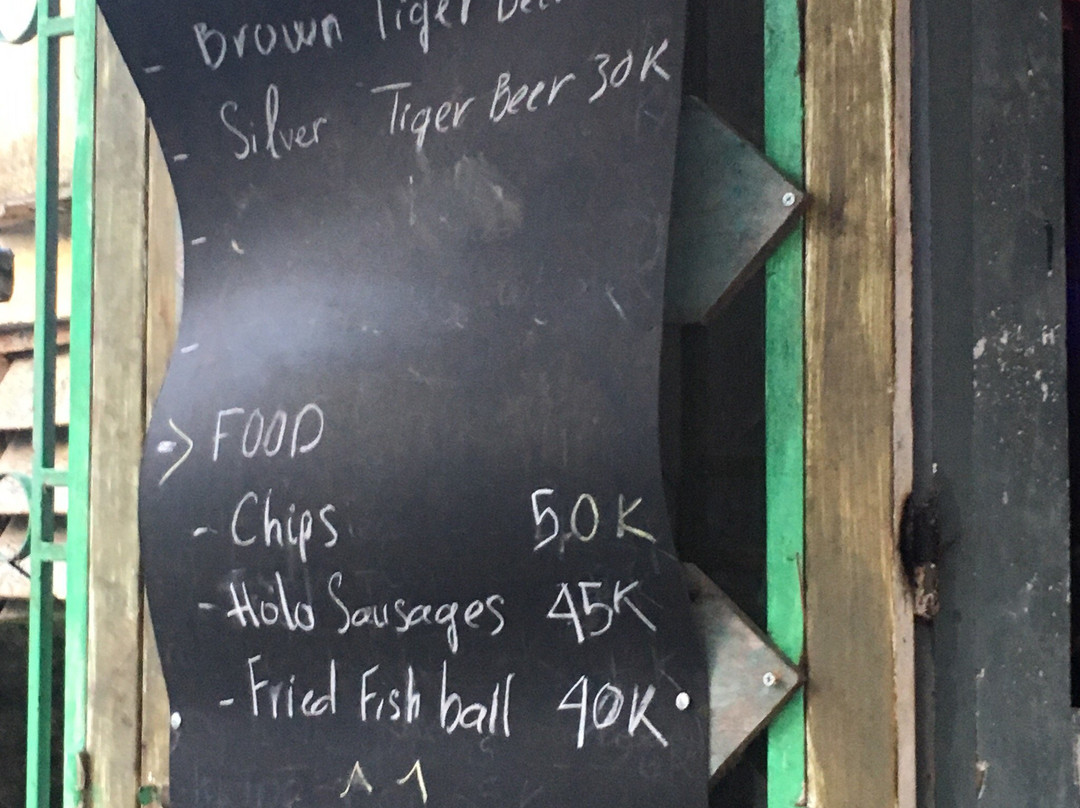 - Brown Tiger
- Silver Tiger Beer 30K
-
-
-> FOOD
- Chips 50K
- Holo Sausages 45K
- Fried Fish ball 40K
^^